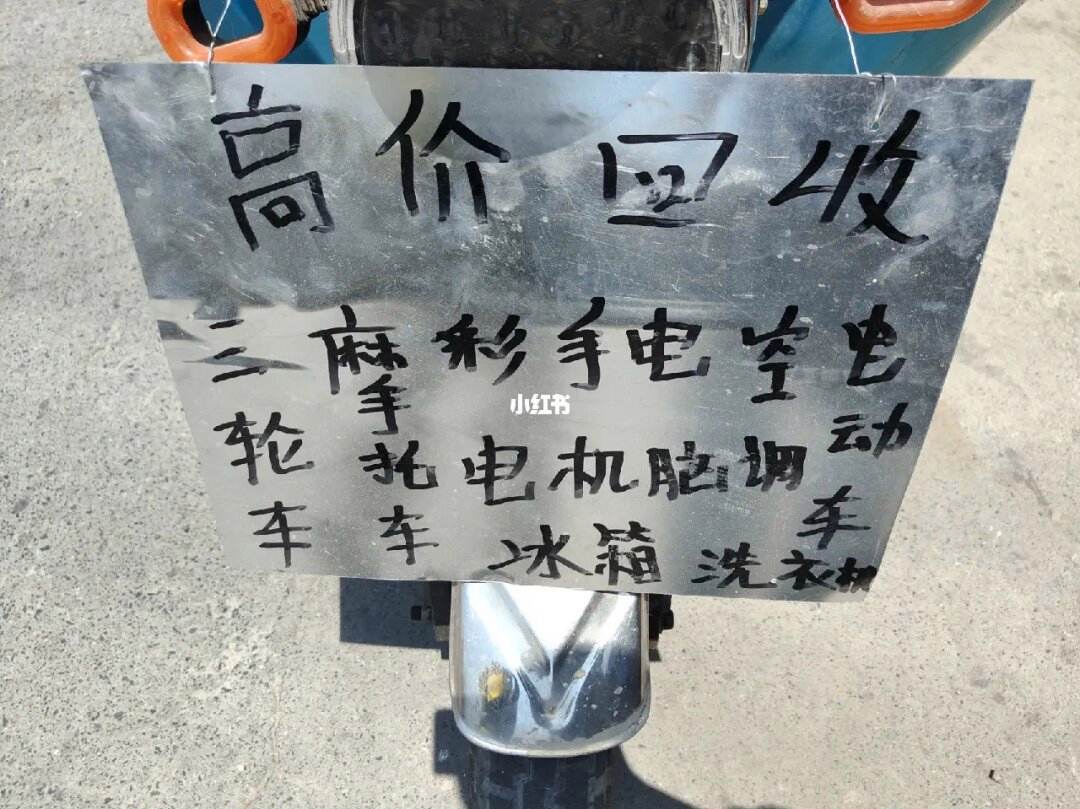 高价回收
三轮车
摩托车
彩电
手机
电脑
空调
电动车
冰箱
洗衣机
小红书